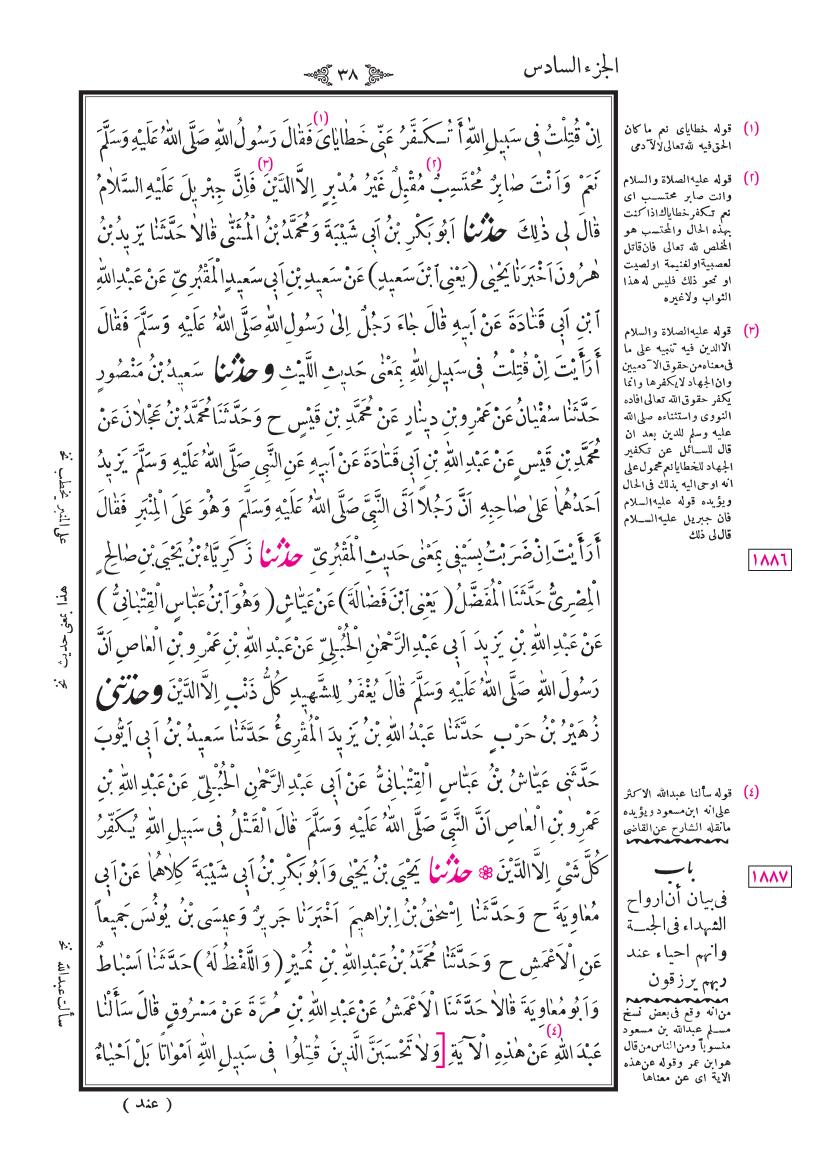 الجزء السادس
٣٨
اِنْ قُتِلْتُ فِى سَبِيلِ اللّٰهِ أَتُكَفَّرُ عَنِّى خَطَايَاىَ (١) فَقَالَ رَسُولُ اللّٰهِ صَلَّى اللّٰهُ عَلَيْهِ وَسَلَّمَ
نَعَمْ وَاَنْتَ صَابِرٌ مُحْتَسِبٌ (٢) مُقْبِلٌ غَيْرُ مُدْبِرٍ اِلَّا الدَّيْنَ (٣) فَاِنَّ جِبْرِيلَ عَلَيْهِ السَّلَامُ
قَالَ لِى ذٰلِكَ حَدَّثَنَا اَبُوبَكْرِ بْنُ اَبِى شَيْبَةَ وَمُحَمَّدُ بْنُ الْمُثَنّٰى قَالَا حَدَّثَنَا يَزِيدُ بْنُ
هٰرُونَ اَخْبَرَنَا يَحْيٰى (يَعْنِى ابْنَ سَعِيدٍ) عَنْ سَعِيدِ بْنِ اَبِى سَعِيدٍ الْمَقْبُرِىِّ عَنْ عَبْدِ اللّٰهِ
ابْنِ اَبِى قَتَادَةَ عَنْ اَبِيهِ قَالَ جَاءَ رَجُلٌ اِلىٰ رَسُولِ اللّٰهِ صَلَّى اللّٰهُ عَلَيْهِ وَسَلَّمَ فَقَالَ
أَرَأَيْتَ اِنْ قُتِلْتُ فِى سَبِيلِ اللّٰهِ بِمَعْنٰى حَدِيثِ اللَّيْثِ وحَدَّثَنَا سَعِيدُ بْنُ مَنْصُورٍ
حَدَّثَنَا سُفْيَانُ عَنْ عَمْرِو بْنِ دِينَارٍ عَنْ مُحَمَّدِ بْنِ قَيْسٍ ح وَحَدَّثَنَا مُحَمَّدُ بْنُ عَجْلَانَ عَنْ
مُحَمَّدِ بْنِ قَيْسٍ عَنْ عَبْدِ اللّٰهِ بْنِ اَبِى قَتَادَةَ عَنْ اَبِيهِ عَنِ النَّبِىِّ صَلَّى اللّٰهُ عَلَيْهِ وَسَلَّمَ يَزِيدُ
اَحَدُهُمَا عَلىٰ صَاحِبِهِ اَنَّ رَجُلاً اَتَى النَّبِىَّ صَلَّى اللّٰهُ عَلَيْهِ وَسَلَّمَ وَهُوَ عَلَى الْمِنْبَرِ فَقَالَ
أَرَأَيْتَ اِنْ ضَرَبْتُ بِسَيْفِى بِمَعْنٰى حَدِيثِ الْمَقْبُرِىِّ حَدَّثَنَا زَكَرِيَّاءُ بْنُ يَحْيَى بْنِ صَالِحٍ
الْمِصْرِىُّ حَدَّثَنَا الْمُفَضَّلُ (يَعْنِى ابْنَ فَضَالَةَ) عَنْ عَيَّاشٍ (وَهُوَ ابْنُ عَبَّاسٍ الْقِتْبَانِىُّ)
عَنْ عَبْدِ اللّٰهِ بْنِ يَزِيدَ اَبِى عَبْدِ الرَّحْمٰنِ الْحُبُلِىِّ عَنْ عَبْدِ اللّٰهِ بْنِ عَمْرِو بْنِ الْعَاصِ اَنَّ
رَسُولَ اللّٰهِ صَلَّى اللّٰهُ عَلَيْهِ وَسَلَّمَ قَالَ يُغْفَرُ لِلشَّهِيدِ كُلُّ ذَنْبٍ اِلَّا الدَّيْنَ وحَدَّثَنِى
زُهَيْرُ بْنُ حَرْبٍ حَدَّثَنَا عَبْدُ اللّٰهِ بْنُ يَزِيدَ الْمُقْرِئُ حَدَّثَنَا سَعِيدُ بْنُ اَبِى اَيُّوبَ
حَدَّثَنِى عَيَّاشُ بْنُ عَبَّاسٍ الْقِتْبَانِىُّ عَنْ اَبِى عَبْدِ الرَّحْمٰنِ الْحُبُلِىِّ عَنْ عَبْدِ اللّٰهِ بْنِ
عَمْرِو بْنِ الْعَاصِ اَنَّ النَّبِىَّ صَلَّى اللّٰهُ عَلَيْهِ وَسَلَّمَ قَالَ الْقَتْلُ فِى سَبِيلِ اللّٰهِ يُكَفِّرُ
كُلَّ شَىْءٍ اِلَّا الدَّيْنَ ❁ حَدَّثَنَا يَحْيَى بْنُ يَحْيٰى وَاَبُوبَكْرِ بْنُ اَبِى شَيْبَةَ كِلَاهُمَا عَنْ اَبِى
مُعَاوِيَةَ ح وَحَدَّثَنَا اِسْحٰقُ بْنُ اِبْرَاهِيمَ اَخْبَرَنَا جَرِيرٌ وَعِيسَى بْنُ يُونُسَ جَمِيعاً
عَنِ الْاَعْمَشِ ح وَحَدَّثَنَا مُحَمَّدُ بْنُ عَبْدِ اللّٰهِ بْنِ نُمَيْرٍ (وَاللَّفْظُ لَهُ) حَدَّثَنَا اَسْبَاطٌ
وَاَبُو مُعَاوِيَةَ قَالَا حَدَّثَنَا الْاَعْمَشُ عَنْ عَبْدِ اللّٰهِ بْنِ مُرَّةَ عَنْ مَسْرُوقٍ قَالَ سَأَلْنَا
عَبْدَ اللّٰهِ (٤) عَنْ هٰذِهِ الْآيَةِ [وَلَا تَحْسَبَنَّ الَّذِينَ قُتِلُوا فِى سَبِيلِ اللّٰهِ اَمْوَاتاً بَلْ اَحْيَاءٌ
( عند )
(١) قوله خطاياى نعم ما كان
الحق فيه لله تعالى لا لآدمى
(٢) قوله عليه الصلاة والسلام
وانت صابر محتسب اى
نعم تكفر خطاياك اذا كنت
بهذه الحال والمحتسب هو
المخلص لله تعالى فان قاتل
لعصبية او لغنيمة او لصيت
او نحو ذلك فليس له هذا
الثواب ولا غيره
(٣) قوله عليه الصلاة والسلام
الا الدين فيه تنبيه على ما
فى معناه من حقوق الآدميين
وان الجهاد لا يكفرها وانما
يكفر حقوق الله تعالى افاده
النووى واستثناءه صلى الله
عليه وسلم للدين بعد ان
قال للسائل عن تكفير
الجهاد للخطايا نعم محمول على
انه اوحى اليه بذلك فى الحال
ويؤيده قوله عليه السلام
فان جبريل عليه السلام
قال لى ذلك
١٨٨٦
(٤) قوله سألنا عبدالله الاكثر
على انه ابن مسعود ويؤيده
ما نقله الشارح عن القاضى
١٨٨٧
باب
فى بيان أن ارواح
الشهداء فى الجنة
وانهم احياء عند
ربهم يرزقون
من انه وقع فى بعض نسخ
مسلم عبدالله بن مسعود
منسوباً ومن الناس من قال
هو ابن عمر وقوله عن هذه
الآية اى عن معناها
على المنبر يخطب نخ
هذا بمعنى حديث نخ
سألت عبدالله نخ